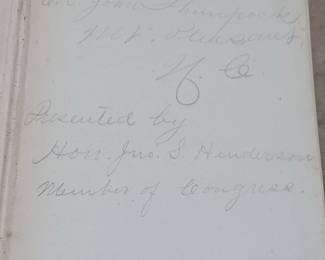 Mt. Pleasant,
N. C
Presented by
Hon. Jno. S. Henderson
Member of Congress.